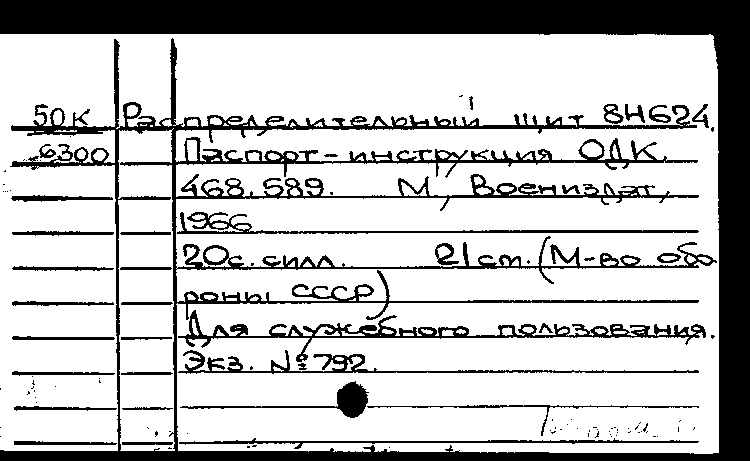 50К Распределительный щит 8Н624.
6300 Паспорт-инструкция ОДК.
468.589. М, Воениздат,
1966
20с. силл. 21 см. (М-во обо
роны СССР)
Для служебного пользования.
Экз. № 792.